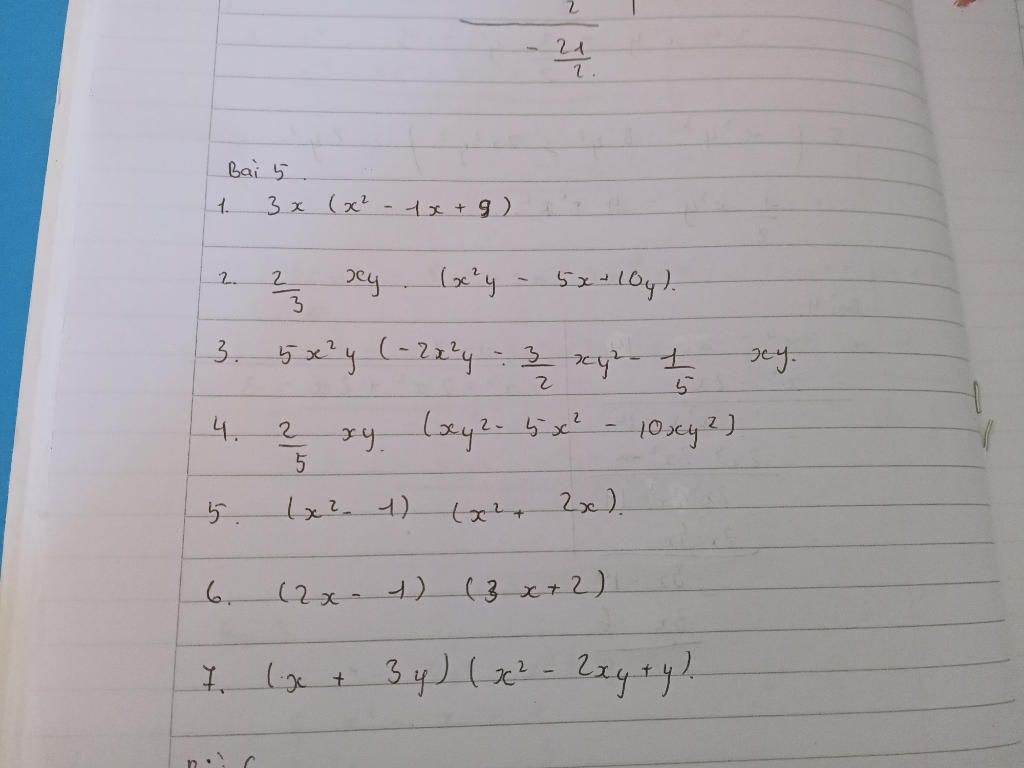 2
- 21/2.
Bài 5.
1. 3x (x² - 1x + 9)
2. 2/3 xy . (x²y - 5x + 10y).
3. 5x²y (-2x²y - 3/2 xy² - 1/5 xy.
4. 2/5 xy. (xy² - 5x² - 10xy²)
5. (x² - 1) (x² + 2x).
6. (2x - 1) (3x + 2)
7. (x + 3y) (x² - 2xy + y).